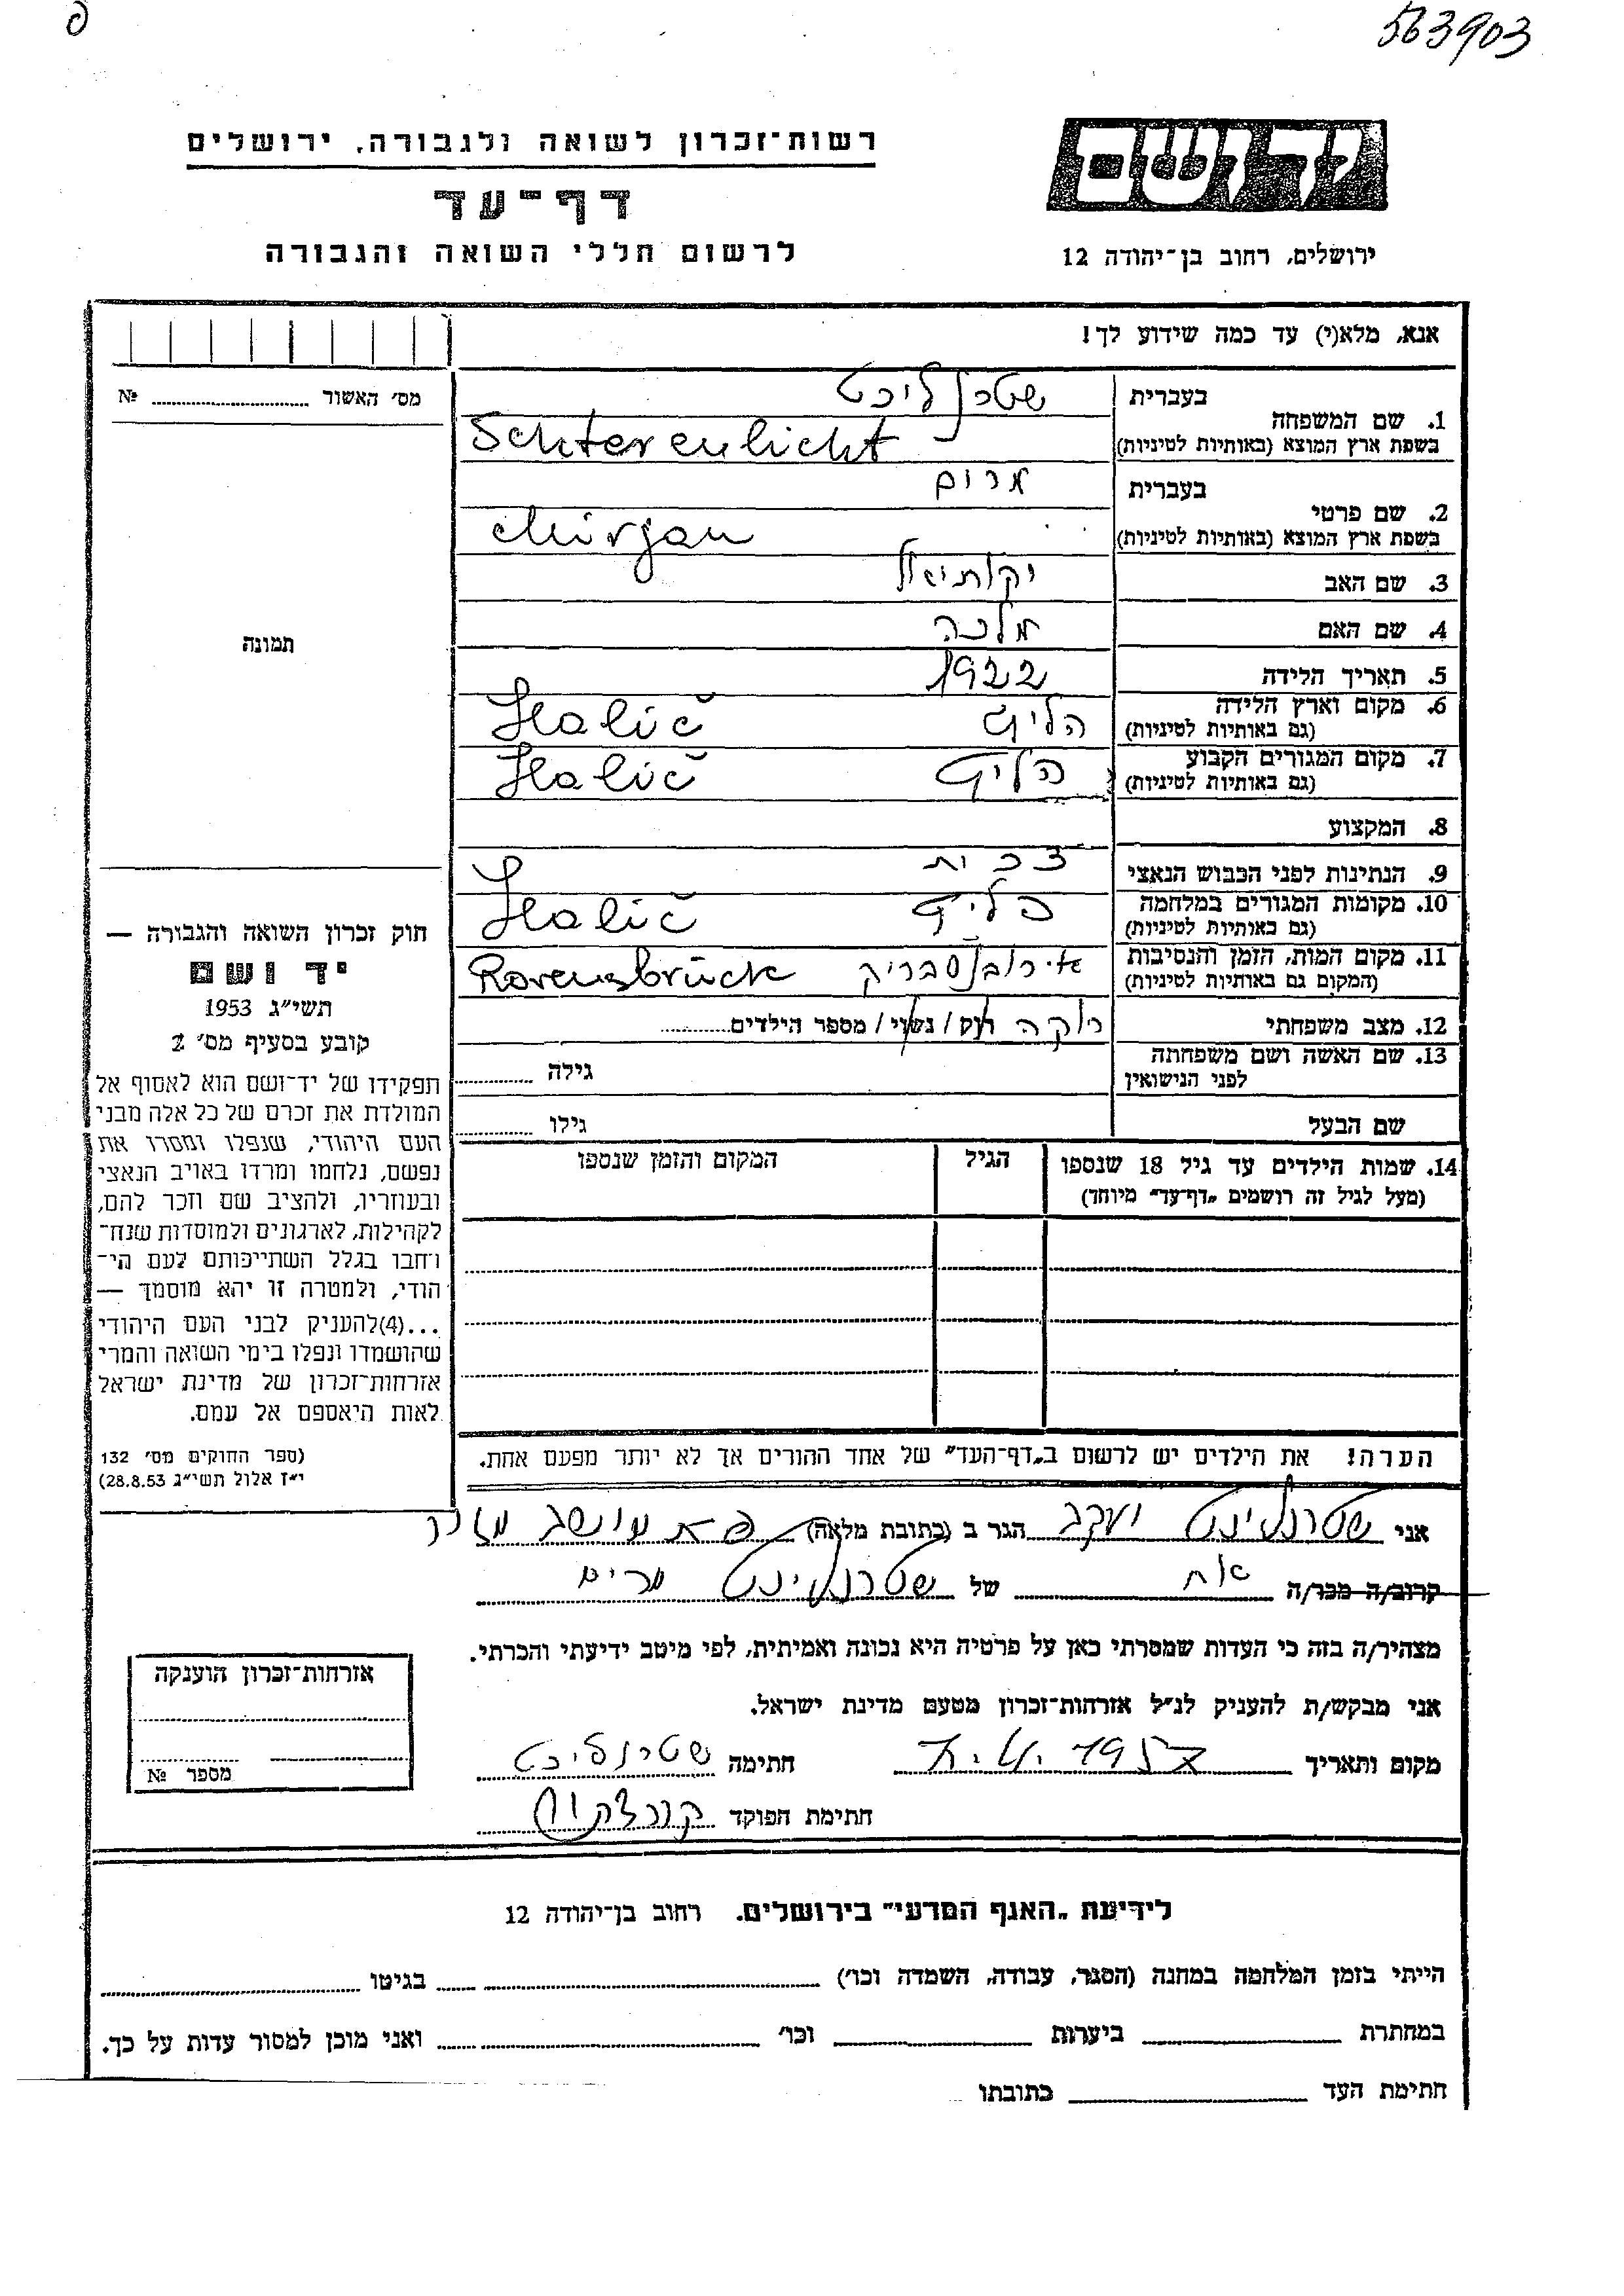 563903
יד ושם
ירושלים, רחוב בן־יהודה 12
רשות־זכרון לשואה ולגבורה, ירושלים
דף־עד
לרשום חללי השואה והגבורה
אנא, מלא(י) עד כמה שידוע לך!
מס׳ האשור № 
1. שם המשפחה בעברית שטרנליכט
בשפת ארץ המוצא (באותיות לטיניות) Schterenlicht
2. שם פרטי בעברית מרים
בשפת ארץ המוצא (באותיות לטיניות) Mirjan
3. שם האב יקותיאל
4. שם האם מלכה
5. תאריך הלידה 1922
6. מקום וארץ הלידה (גם באותיות לטיניות) הליץ Halič
7. מקום המגורים הקבוע (גם באותיות לטיניות) הליץ Halič
8. המקצוע
9. הנתינות לפני הכבוש הנאצי
10. מקומות המגורים במלחמה (גם באותיות לטיניות) הליץ Halič
11. מקום המות, הזמן והנסיבות (המקום גם באותיות לטיניות) Ravensbrück
12. מצב משפחתי רוקה רווק / נשוי / מספר הילדים
13. שם האשה ושם משפחתה לפני הנישואין גילה
שם הבעל גילו
14. שמות הילדים עד גיל 18 שנספו הגיל המקום והזמן שנספו
(מעל לגיל זה רושמים „דף־עד״ מיוחד)
הערה! את הילדים יש לרשום ב„דף־העד״ של אחד ההורים אך לא יותר מפעם אחת.
תמונה
חוק זכרון השואה והגבורה —
יד ושם
תשי״ג 1953
קובע בסעיף מס׳ 2
תפקידו של יד־ושם הוא לאסוף אל
המולדת את זכרם של כל אלה מבני
העם היהודי, שנפלו ומסרו את
נפשם, נלחמו ומרדו באויב הנאצי
ובעוזריו, ולהציב שם וזכר להם,
לקהילות, לארגונים ולמוסדות שנח־
רבו בגלל השתייכותם לעם הי־
הודי, ולמטרה זו יהא מוסמך —
...(4)להעניק לבני העם היהודי
שהושמדו ונפלו בימי השואה והמרי
אזרחות־זכרון של מדינת ישראל
לאות היאספם אל עמם.
(ספר החוקים מס׳ 132
י״ז אלול תשי״ג 28.8.53)
אני שטרנליכט יעקב הגר ב (כתובת מלאה) מושב
קרוב/ה מכר/ה אח של שטרנליכט מרים
מצהיר/ה בזה כי העדות שמסרתי כאן על פרטיה היא נכונה ואמיתית, לפי מיטב ידיעתי והכרתי.
אני מבקש/ת להעניק לנ״ל אזרחות־זכרון מטעם מדינת ישראל.
מקום ותאריך 1957 חתימה שטרנליכט
חתימת הפוקד
אזרחות־זכרון הוענקה
מספר №
לידיעת „האגף המדעי״ בירושלים. רחוב בן־יהודה 12
הייתי בזמן המלחמה במחנה (הסגר, עבודה, השמדה וכו׳) בגיטו
במחתרת ביערות וכו׳ ואני מוכן למסור עדות על כך.
חתימת העד כתובתו